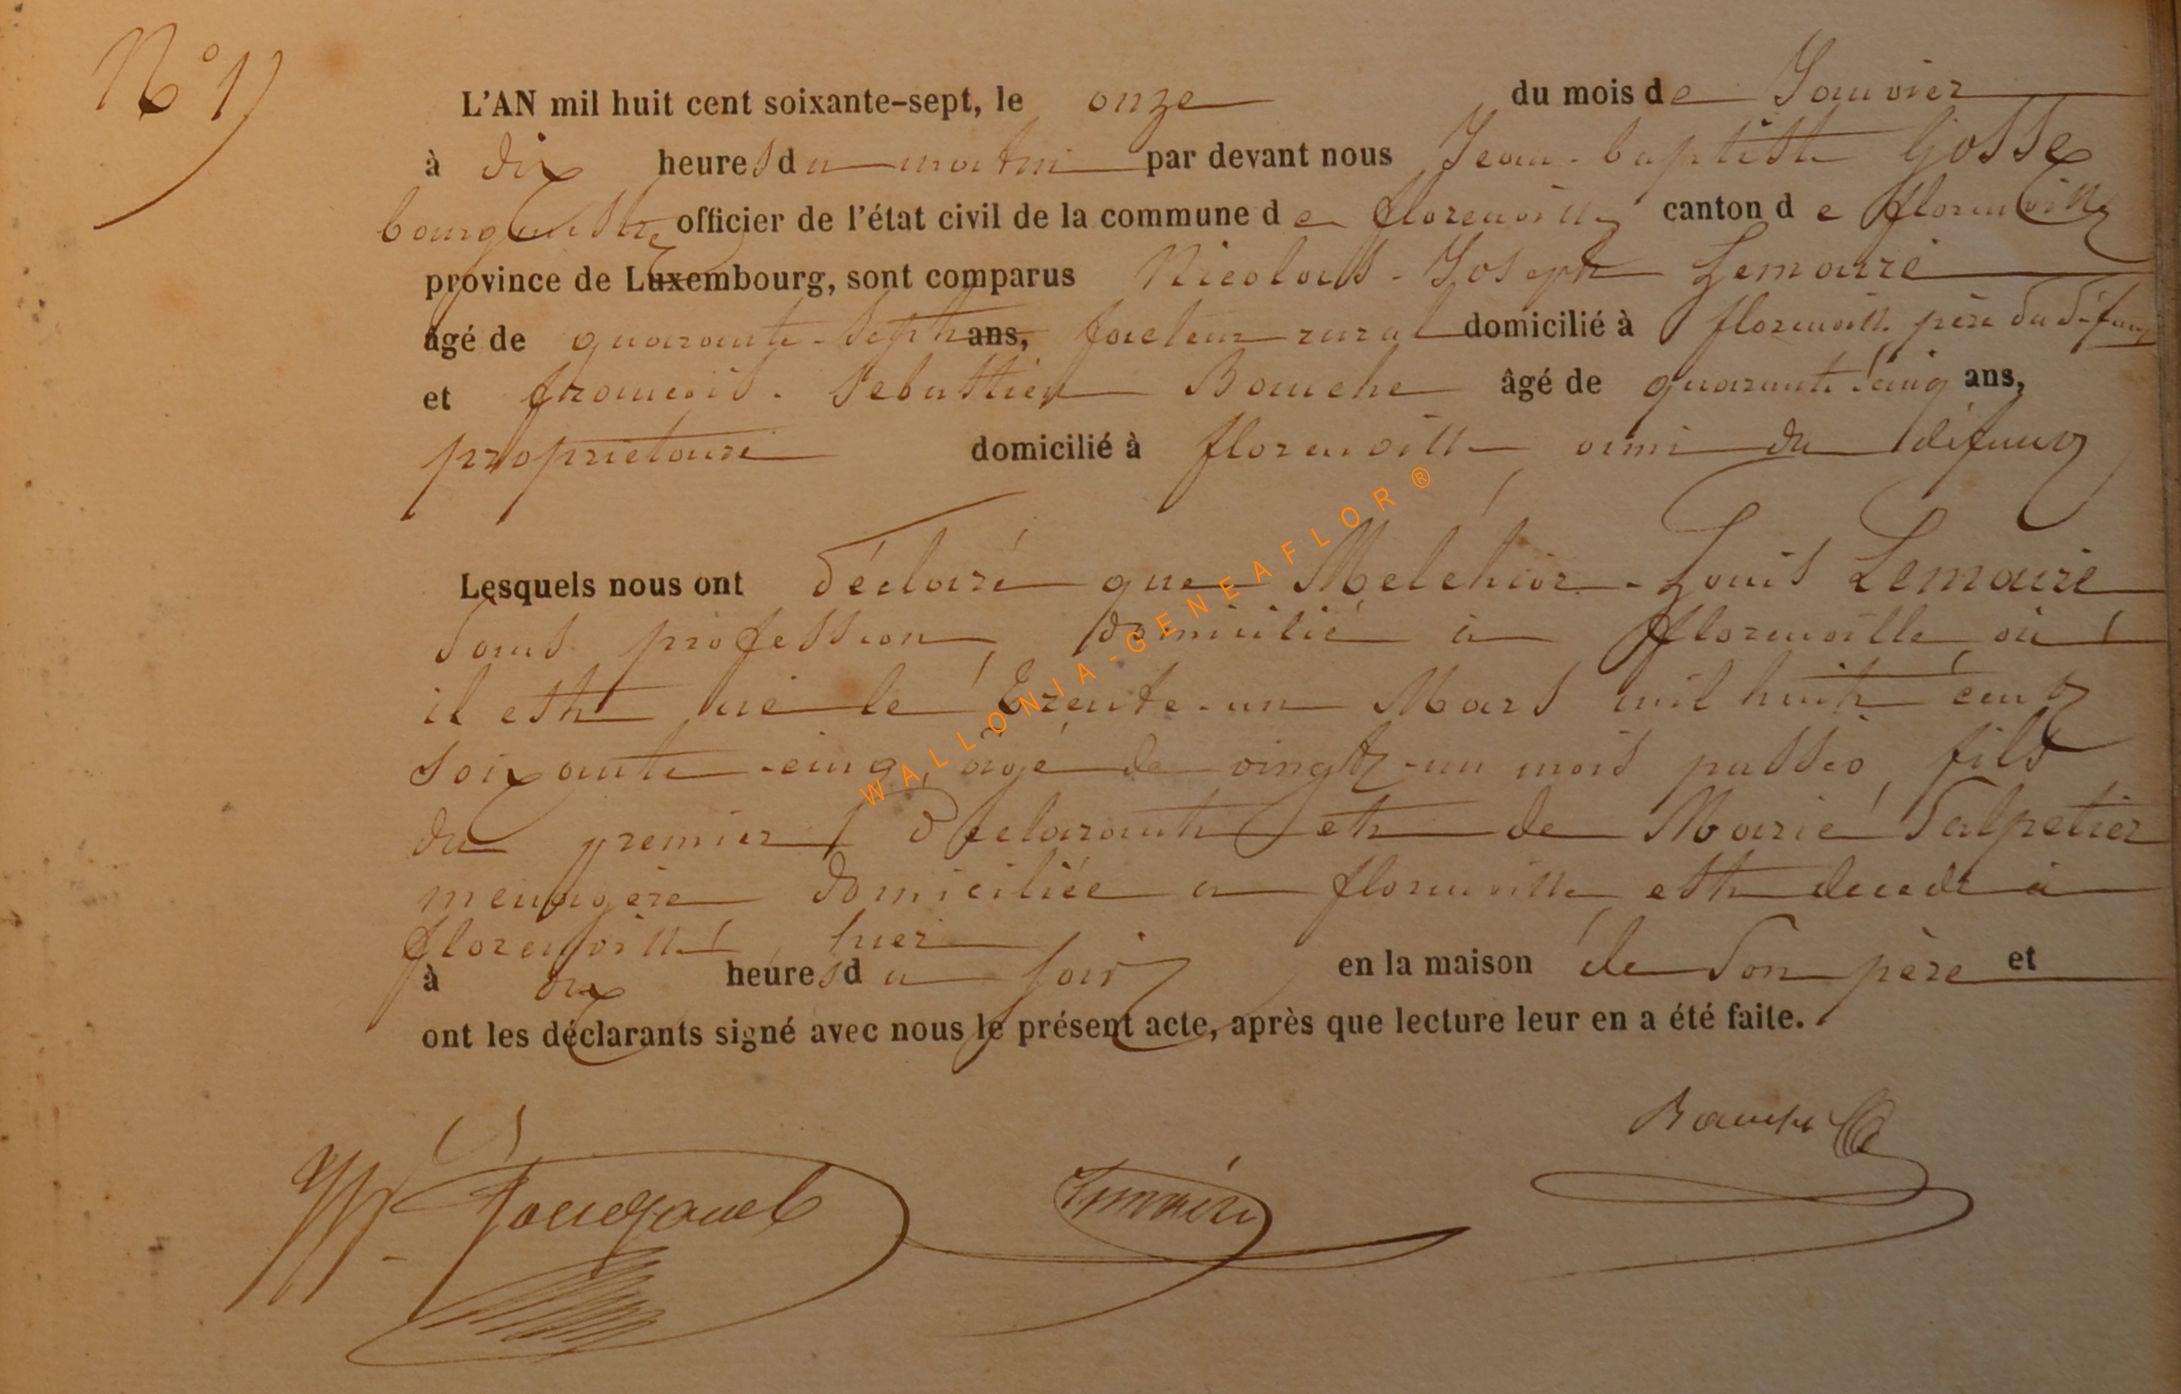 N° 1
L'AN mil huit cent soixante-sept, le onze du mois de Janvier
à dix heures du matin par devant nous Jean-baptiste Gosse
bourgmestre officier de l'état civil de la commune de florenville canton de florenville
province de Luxembourg, sont comparus Nicolas-Joseph Lemaire
âgé de quarante-sept ans, facteur rural domicilié à florenville père du défunt
et françois-Sebastien Bauche âgé de quarante cinq ans,
propriétaire domicilié à florenville ami du défunt
Lesquels nous ont déclaré que Melchior-Louis Lemaire
sans profession, domicilié à florenville où
il est né le trente-un Mars mil huit cent
soixante-cinq, âgé de vingt-un mois passés, fils
du premier déclarant et de Marie Salpetier
menagère domiciliée a florenville est décédé à
florenville, hier
à dix heures du soir en la maison de son père et
ont les déclarants signé avec nous le présent acte, après que lecture leur en a été faite.
Bauche
Lemaire
WALLONIA-GENEAFLOR®